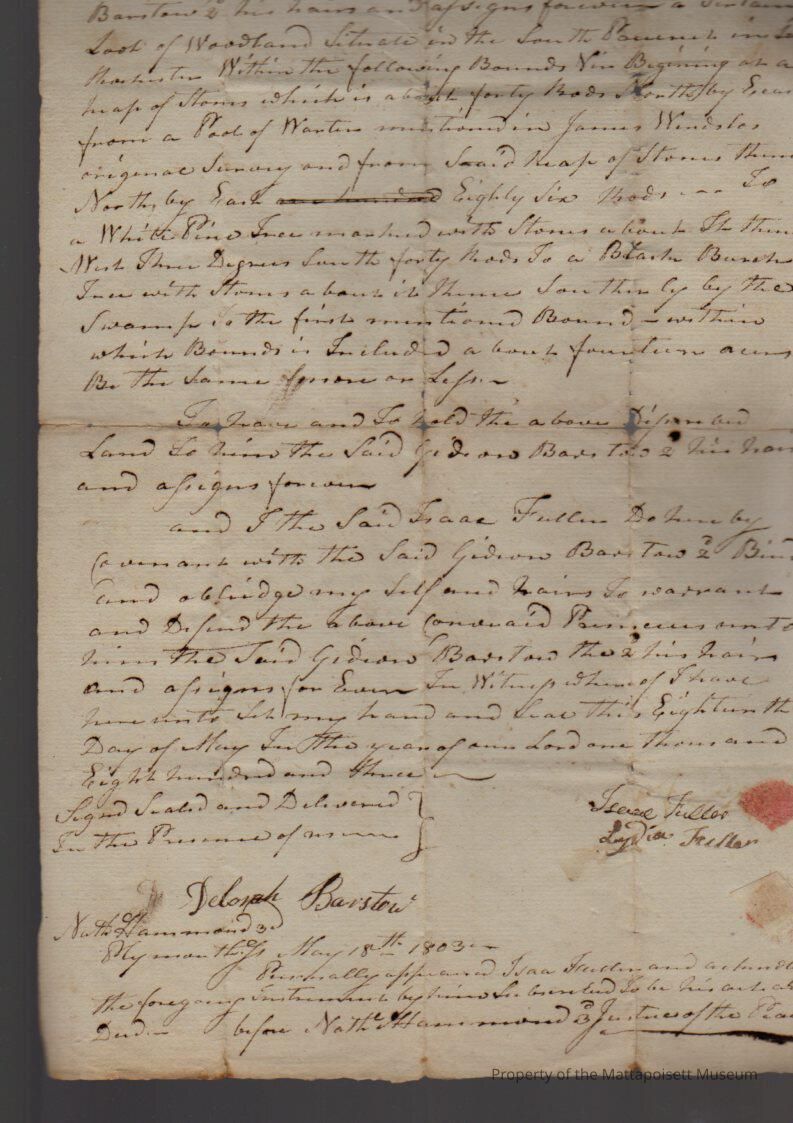 Barstow 2d his hairs and assigns forever a Sertain
Loot of Woodland Situate in the South Precinct in
Rochester Within the following Bounds Viz Begining at a
heap of Stones which is about forty Rods North by Eeas
from a Pool of Warter mentioned in James Winslos
original Survey and from Said heap of Stones thenc
North by East one hundred Eighty Six Rods --- To
a White Pine Tree marked with Stones about It then
West Three Degrees South forty Rods To a Black Burch
Tree with Stones about it thence Southerly by the
Swamp to the first mentioned Bound - within
which Bounds is Included about fourteen acres
Be the Same more or Less
To have and To hold the above Discribed
Land to him the Said Gideon Barstow 2 his hair
and assigns forever
and I the Said Isaac Fuller Do here by
Covenant with the Said Gideon Barstow 2d Bind
and obleidge my Self and hairs to warrant
and Defend the above Convaid Premeses unto
him the Said Gideon Barstow the 2d his hairs
and assigns for Ever In Witness whereof I have
here unto Set my hand and Seal this Eighteenth
Day of May In the year of our Lord one thousand
Eight hundred and three
Signd Sealed and Delivered
In the Presence of
Isaac Fuller
Lydia Fuller
Deborah Barstow
Nath Hammond 3d
Plymouth Ss May 18th 1803
Personally appeared Isaac Fuller and
the foregoing Instrument by him Subscribed To be his act
Deed - before Nathl Hammond 3d Justice of the Peac
Property of the Mattapoisett Museum